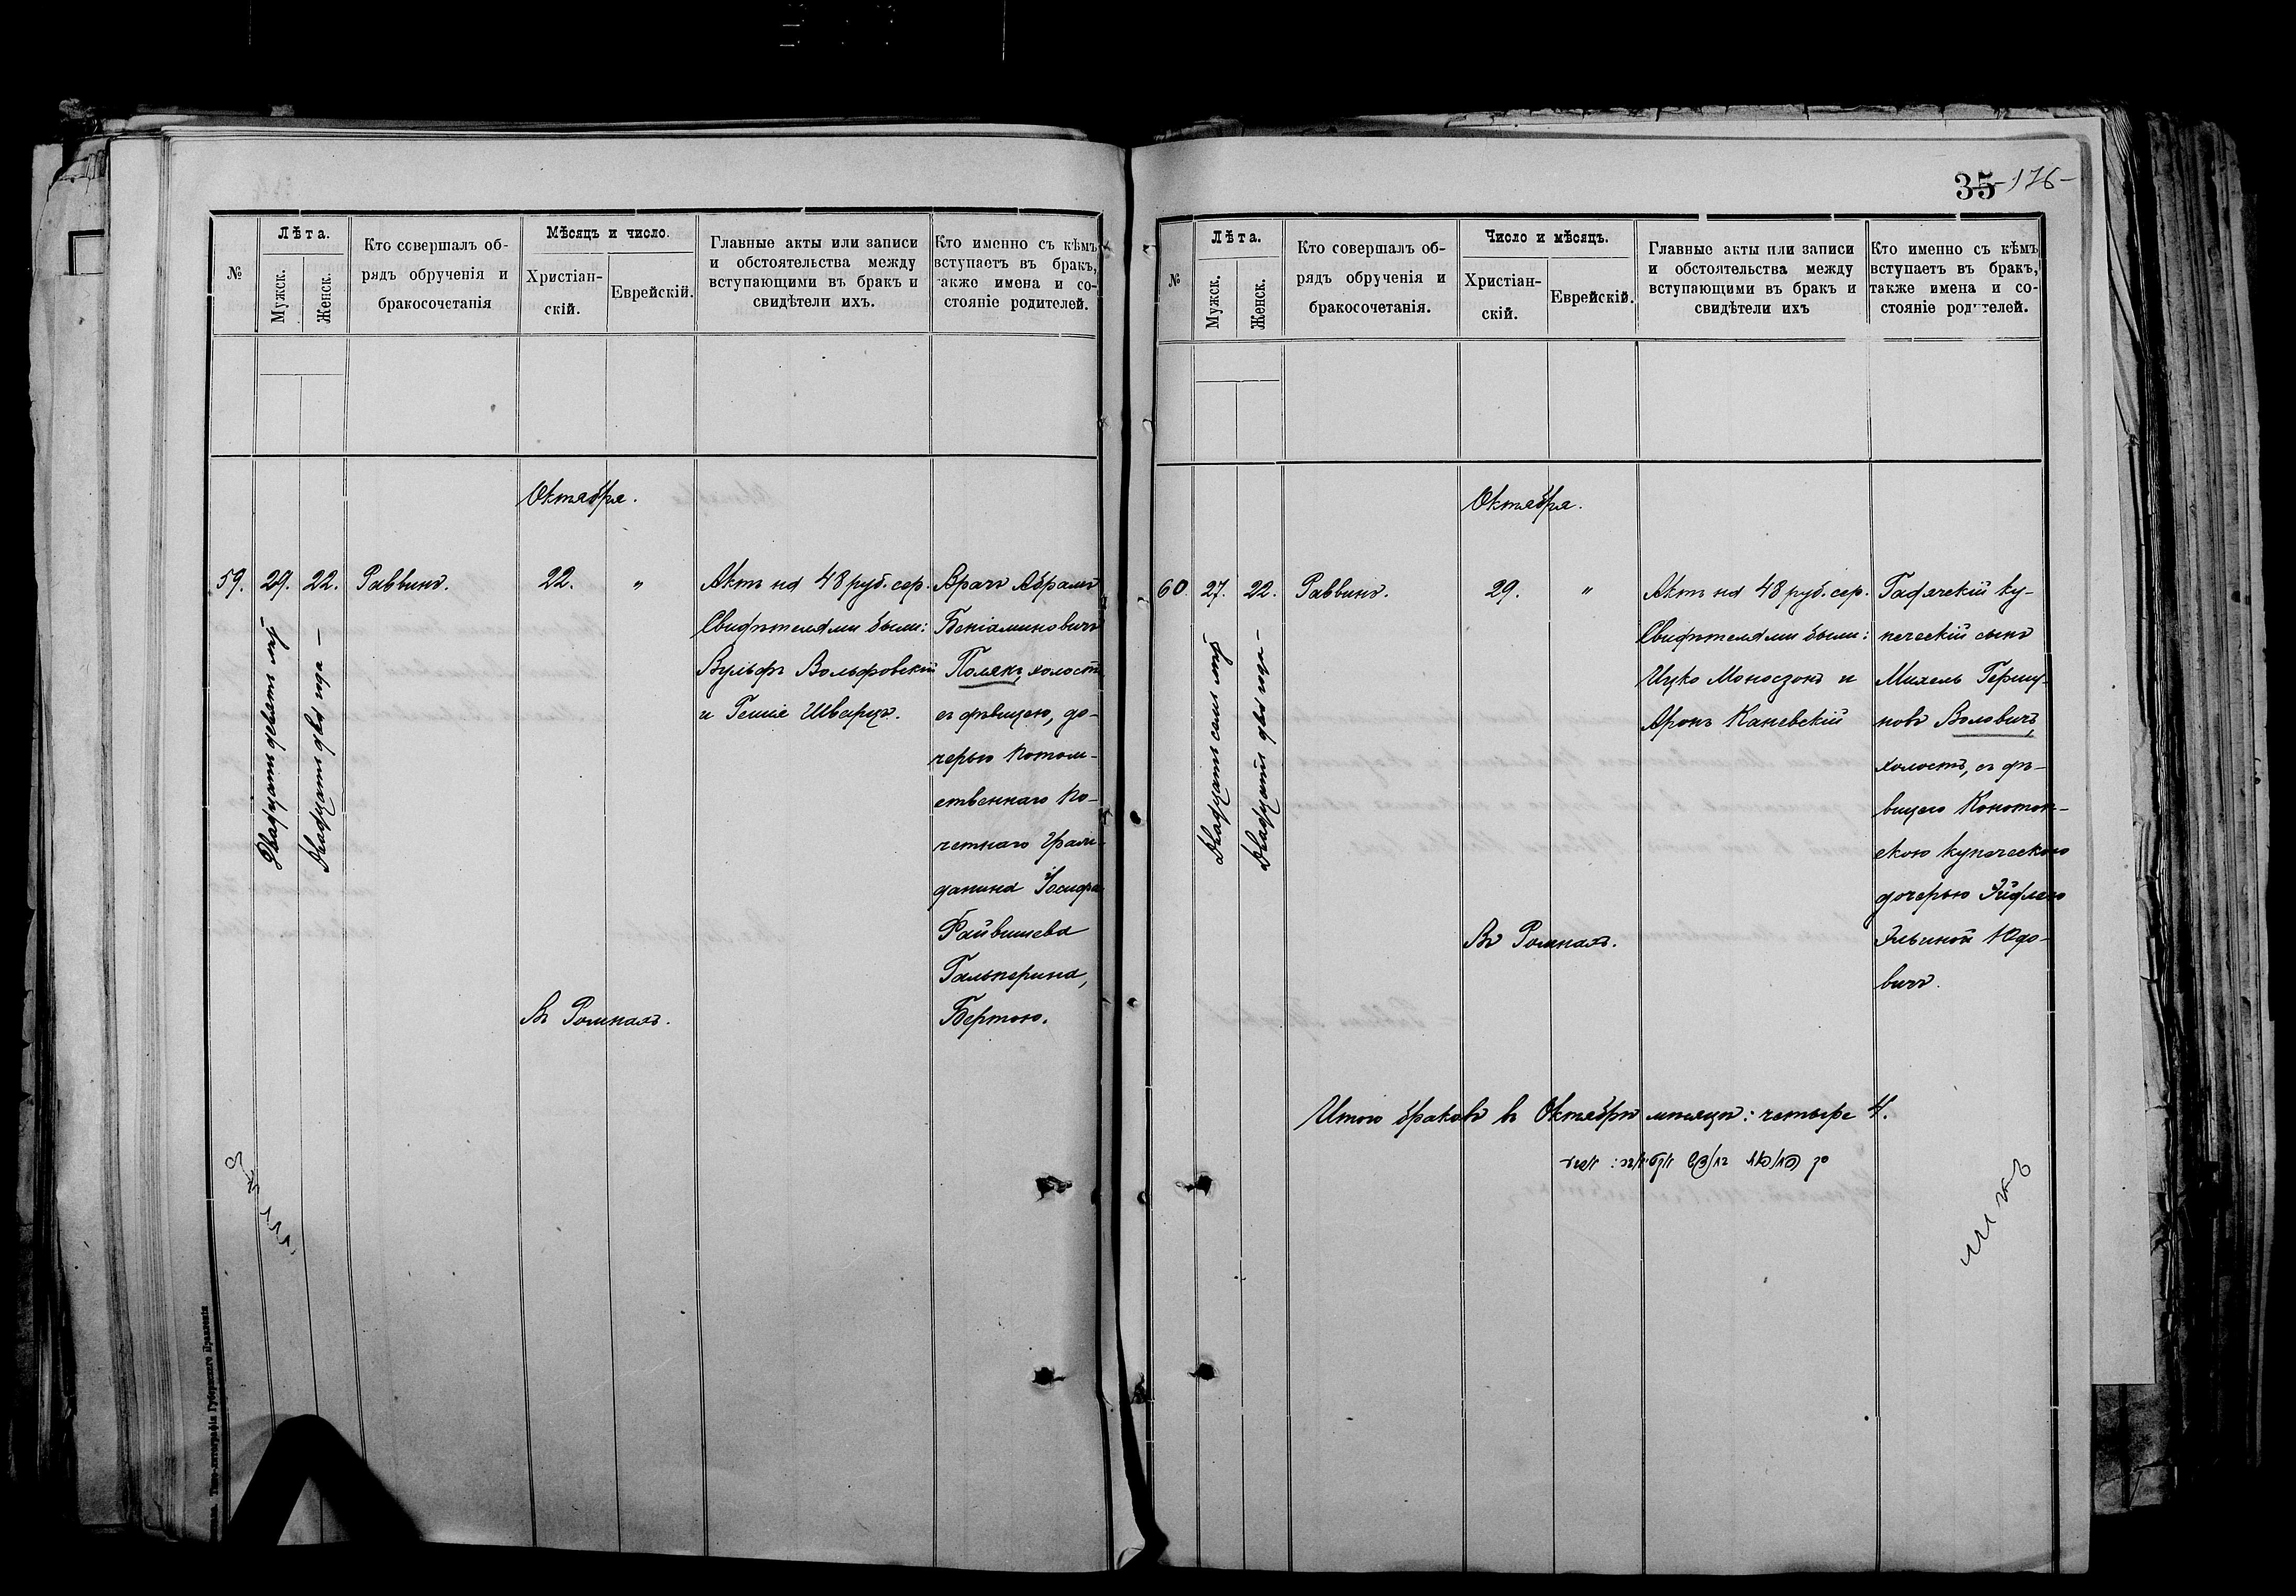 Лѣта.
Мужск.
Женск.
№
Кто совершалъ об-
рядъ обрученія и
бракосочетанія
Мѣсяцъ и число.
Христіан-
скій.
Еврейскій.
Главные акты или записи
и обстоятельства между
вступающими въ бракъ и
свидѣтели ихъ.
Кто именно съ кѣмъ
вступаетъ въ бракъ,
также имена и со-
стояніе родителей.
Октября.
59. 29. 22. Раввинъ. 22. "
Двадцать девять лѣтъ
Двадцать два года —
Актъ на 48 руб. сер.
Свидѣтелями были:
Вульфъ Вольфовскій
и Гешие Шварцъ.
Врачъ Абрамъ
Беніаминовичъ
Полякъ, холостъ
съ дѣвицею, до-
черью потом-
ственнаго по-
четнаго граж-
данина Іосифа
Файвишева
Гальперина,
Бертою.
Въ Ромнахъ.
Типо-литографія Губернскаго Правленія
35 -176-
№
Лѣта.
Мужск.
Женск.
Кто совершалъ об-
рядъ обрученія и
бракосочетанія.
Число и мѣсяцъ.
Христіан-
скій.
Еврейскій.
Главные акты или записи
и обстоятельства между
вступающими въ бракъ и
свидѣтели ихъ
Кто именно съ кѣмъ
вступаетъ въ бракъ,
также имена и со-
стояніе родителей.
Октября.
60. 27. 22. Раввинъ. 29. "
Двадцать семь лѣтъ
Двадцать два года —
Актъ на 48 руб. сер.
Свидѣтелями были:
Ицко Моносзонъ и
Аронъ Каневскій
Гадячскій ку-
печескій сынъ
Михель Гершу-
новъ Воловичъ,
холостъ, съ дѣ-
вицею Конотоп-
скою купеческою
дочерью Эйдлею
Эльиной Юдо-
вичъ.
Въ Ромнахъ.
Итого браковъ въ Октябрѣ мѣсяцѣ: четыре 4.